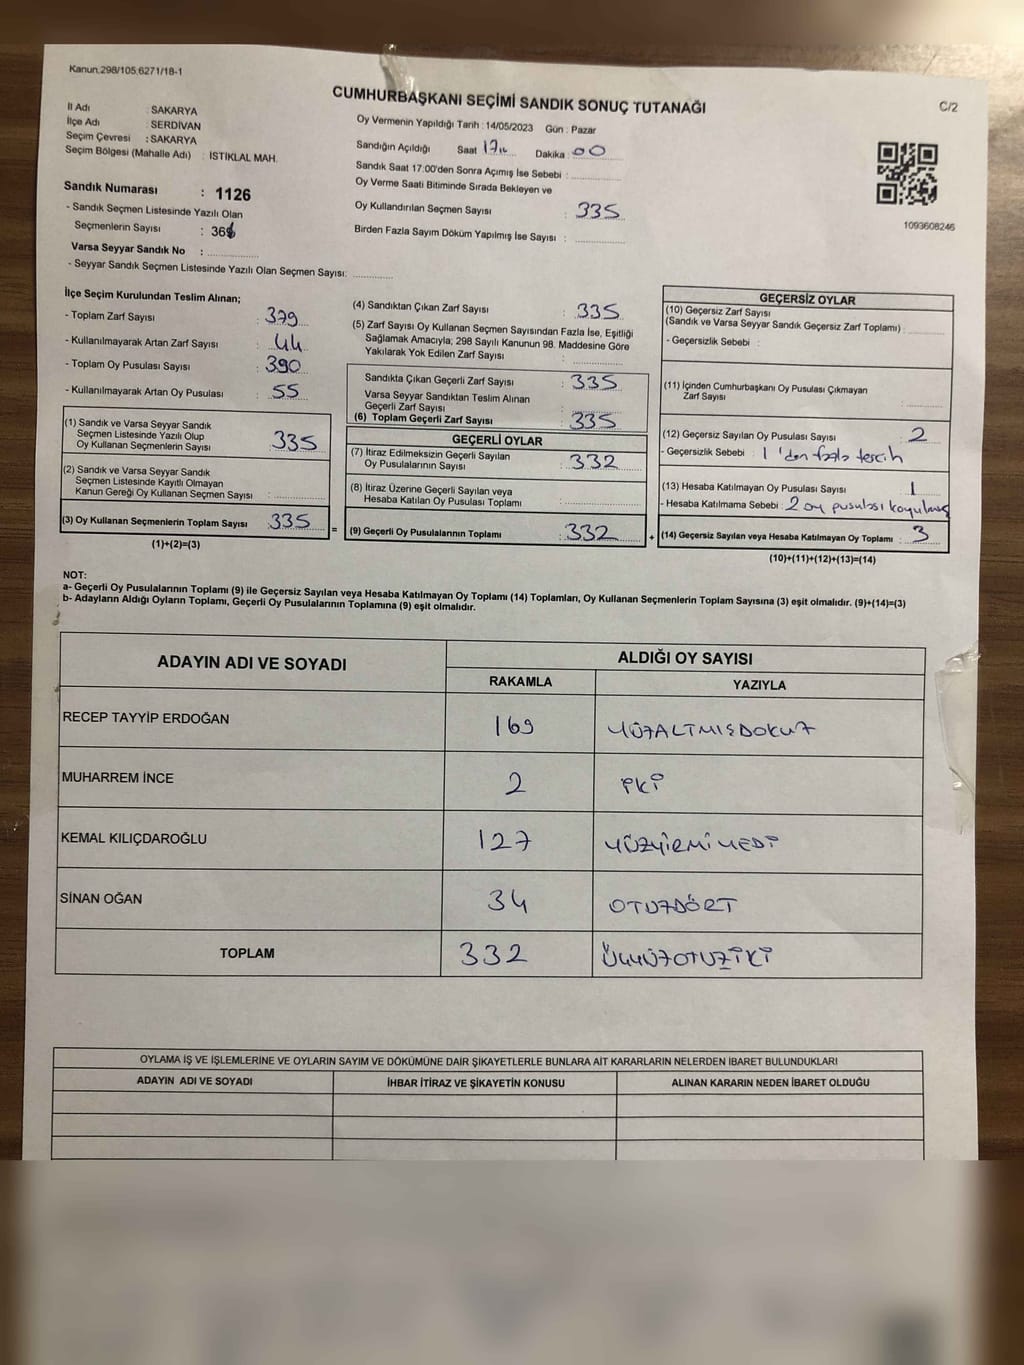 Kanun.298/105,6271/18-1
CUMHURBAŞKANI SEÇİMİ SANDIK SONUÇ TUTANAĞI
C/2
İl Adı : SAKARYA
İlçe Adı : SERDİVAN
Seçim Çevresi : SAKARYA
Seçim Bölgesi (Mahalle Adı) : İSTİKLAL MAH.
Oy Vermenin Yapıldığı Tarih : 14/05/2023 Gün : Pazar
Sandığın Açıldığı Saat 17 Dakika : 00
Sandık Saat 17:00'den Sonra Açımış İse Sebebi :
Oy Verme Saati Bitiminde Sırada Bekleyen ve
Oy Kullandırılan Seçmen Sayısı : 335
Birden Fazla Sayım Döküm Yapılmış İse Sayısı :
1093608246
Sandık Numarası : 1126
- Sandık Seçmen Listesinde Yazılı Olan
Seçmenlerin Sayısı :
Varsa Seyyar Sandık No :
- Seyyar Sandık Seçmen Listesinde Yazılı Olan Seçmen Sayısı:
İlçe Seçim Kurulundan Teslim Alınan;
- Toplam Zarf Sayısı : 379
- Kullanılmayarak Artan Zarf Sayısı : 44
- Toplam Oy Pusulası Sayısı : 390
- Kullanılmayarak Artan Oy Pusulası : 55
(1) Sandık ve Varsa Seyyar Sandık
Seçmen Listesinde Yazılı Olup
Oy Kullanan Seçmenlerin Sayısı : 335
(2) Sandık ve Varsa Seyyar Sandık
Seçmen Listesinde Kayıtlı Olmayan
Kanun Gereği Oy Kullanan Seçmen Sayısı :
(3) Oy Kullanan Seçmenlerin Toplam Sayısı : 335
(1)+(2)=(3)
=
(4) Sandıktan Çıkan Zarf Sayısı : 335
(5) Zarf Sayısı Oy Kullanan Seçmen Sayısından Fazla İse, Eşitliği
Sağlamak Amacıyla, 298 Sayılı Kanunun 98. Maddesine Göre
Yakılarak Yok Edilen Zarf Sayısı :
Sandıkta Çıkan Geçerli Zarf Sayısı : 335
Varsa Seyyar Sandıktan Teslim Alınan
Geçerli Zarf Sayısı :
(6) Toplam Geçerli Zarf Sayısı : 335
GEÇERLİ OYLAR
(7) İtiraz Edilmeksizin Geçerli Sayılan
Oy Pusulalarının Sayısı : 332
(8) İtiraz Üzerine Geçerli Sayılan veya
Hesaba Katılan Oy Pusulası Toplamı :
(9) Geçerli Oy Pusulalarının Toplamı : 332
+
GEÇERSİZ OYLAR
(10) Geçersiz Zarf Sayısı
(Sandık ve Varsa Seyyar Sandık Geçersiz Zarf Toplamı) :
- Geçersizlik Sebebi :
(11) İçinden Cumhurbaşkanı Oy Pusulası Çıkmayan
Zarf Sayısı :
(12) Geçersiz Sayılan Oy Pusulası Sayısı : 2
- Geçersizlik Sebebi : 1'den fazla tercih
(13) Hesaba Katılmayan Oy Pusulası Sayısı : 1
- Hesaba Katılmama Sebebi : 2 oy pusulası koyulmuş
(14) Geçersiz Sayılan veya Hesaba Katılmayan Oy Toplamı : 3
(10)+(11)+(12)+(13)=(14)
NOT:
a- Geçerli Oy Pusulalarının Toplamı (9) ile Geçersiz Sayılan veya Hesaba Katılmayan Oy Toplamı (14) Toplamları, Oy Kullanan Seçmenlerin Toplam Sayısına (3) eşit olmalıdır. (9)+(14)=(3)
b- Adayların Aldığı Oyların Toplamı, Geçerli Oy Pusulalarının Toplamına (9) eşit olmalıdır.
ADAYIN ADI VE SOYADI ALDIĞI OY SAYISI
RAKAMLA YAZIYLA
RECEP TAYYİP ERDOĞAN 169 YÜZALTMIŞDOKUZ
MUHARREM İNCE 2 İKİ
KEMAL KILIÇDAROĞLU 127 YÜZYİRMİYEDİ
SİNAN OĞAN 34 OTUZDÖRT
TOPLAM 332 ÜÇYÜZOTUZİKİ
OYLAMA İŞ VE İŞLEMLERİNE VE OYLARIN SAYIM VE DÖKÜMÜNE DAİR ŞİKAYETLERLE BUNLARA AİT KARARLARIN NELERDEN İBARET BULUNDUKLARI
ADAYIN ADI VE SOYADI İHBAR İTİRAZ VE ŞİKAYETİN KONUSU ALINAN KARARIN NEDEN İBARET OLDUĞU